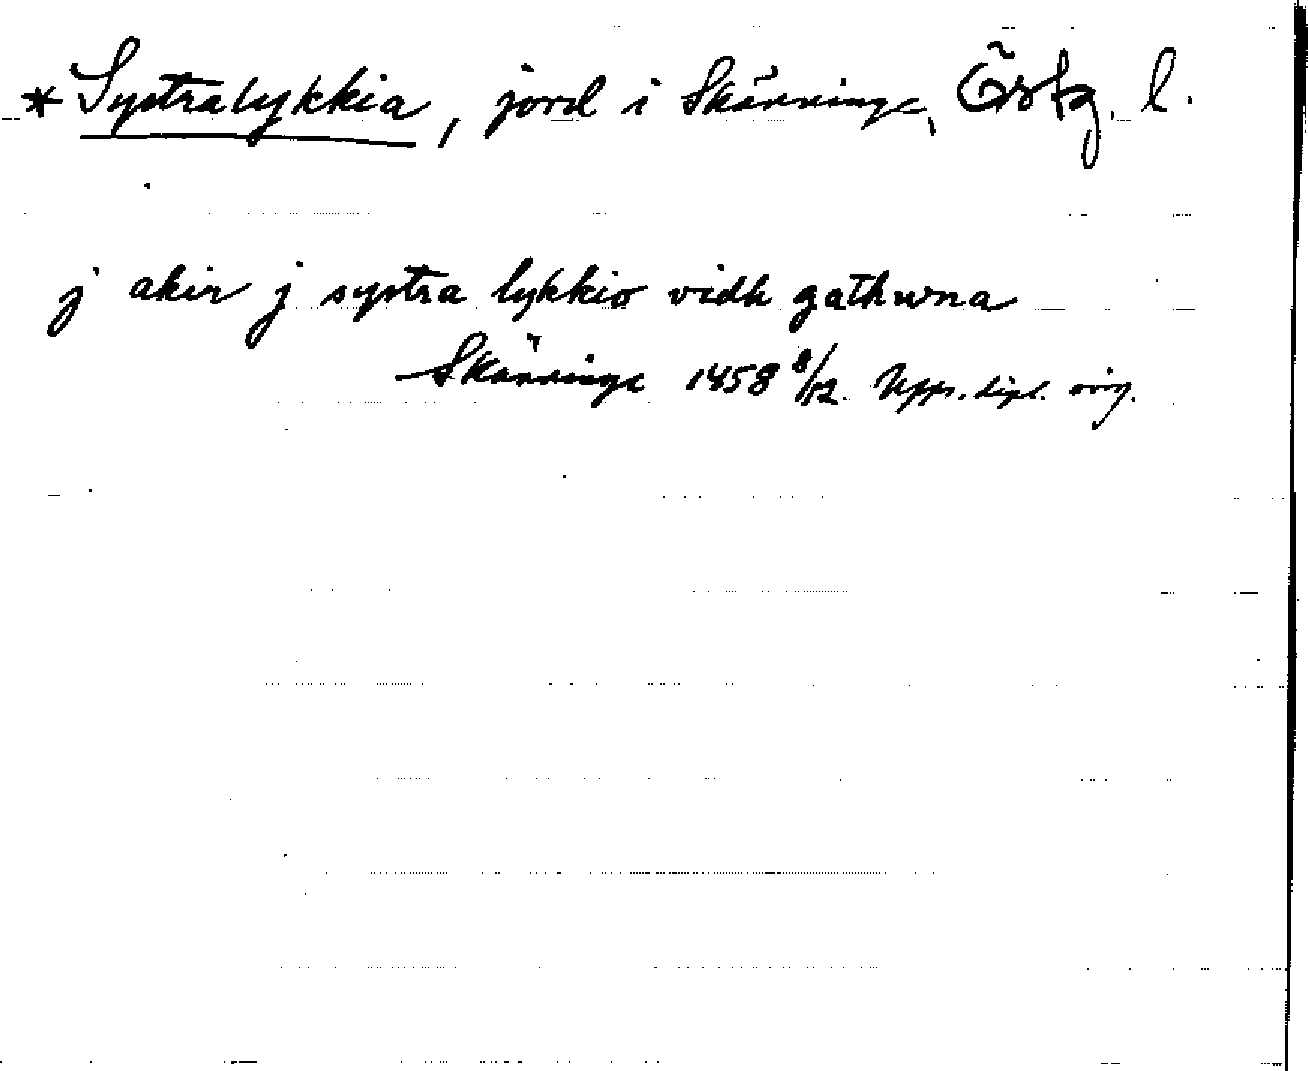 * Systralykkia, jord i Skänninge, Östg. l.
j akir j systra lykkio vidh gathwna
Skänninge 1458 8/12. Upps. dipl. orig.